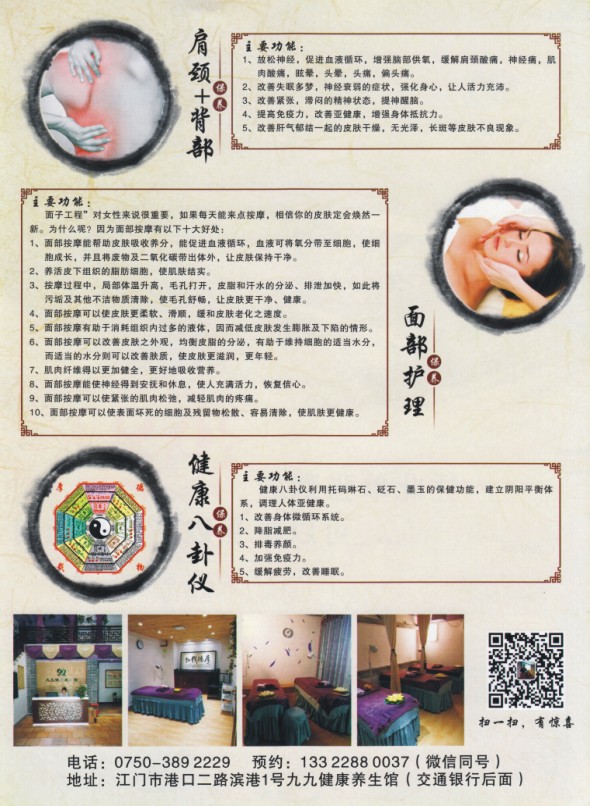 肩颈+背部
保养
主要功能：
1、放松神经，促进血液循环，增强脑部供氧，缓解肩颈酸痛，神经痛，肌
肉酸痛，眩晕，头晕，头痛，偏头痛。
2、改善失眠多梦，神经衰弱的症状，强化身心，让人活力充沛。
3、改善紧张，滞闷的精神状态，提神醒脑。
4、提高免疫力，改善亚健康，增强身体抵抗力。
5、改善肝气郁结一起的皮肤干燥，无光泽，长斑等皮肤不良现象。
主要功能：
面子工程”对女性来说很重要，如果每天能来点按摩，相信你的皮肤定会焕然一
新。为什么呢？因为面部按摩有以下十大好处：
1、面部按摩能帮助皮肤吸收养分，能促进血液循环，血液可将氧分带至细胞，使细
胞成长，并且将废物及二氧化碳带出体外，让皮肤保持干净。
2、养活皮下组织的脂肪细胞，使肌肤结实。
3、按摩过程中，局部体温升高，毛孔打开，皮脂和汗水的分泌、排泄加快，如此将
污垢及其他不洁物质清除，使毛孔舒畅，让皮肤更干净、健康。
4、面部按摩可以使皮肤更柔软、滑顺，缓和皮肤老化之速度。
5、面部按摩有助于消耗组织内过多的液体，因而减低皮肤发生膨胀及下陷的情形。
6、面部按摩可以改善皮肤之外观，均衡皮脂的分泌，有助于维持细胞的适当水分，
而适当的水分则可以改善肤质，使皮肤更滋润，更年轻。
7、肌肉纤维得以更加健全，更好地吸收营养。
8、面部按摩能使神经得到安抚和休息，使人充满活力，恢复信心。
9、面部按摩可以使紧张的肌肉松弛，减轻肌肉的疼痛。
10、面部按摩可以使表面坏死的细胞及残留物松散、容易清除，使肌肤更健康。
面部护理
保养
健康八卦仪
保养
厚德
载物
主要功能：
健康八卦仪利用托码啉石、砭石、墨玉的保健功能，建立阴阳平衡体
系，调理人体亚健康。
1、改善身体微循环系统。
2、降脂减肥。
3、排毒养颜。
4、加强免疫力。
5、缓解疲劳，改善睡眠。
扫一扫，有惊喜
电话：0750-389 2229　预约：133 2288 0037（微信同号）
地址：江门市港口二路滨港1号九九健康养生馆（交通银行后面）